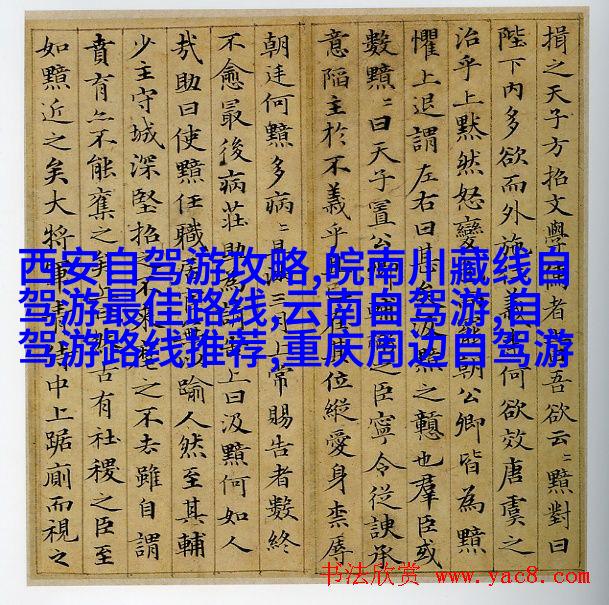 損之天子方招文學儒者吾欲云〻黯對曰
陛下內多欲而外施義何欲效唐虞之
治乎上黙然怒變朝公卿皆為黯
懼上退謂左右曰甚矣汲黯之戇也羣臣或
數黯〻曰天子置公卿輔之臣寧令從諛承
意陷主於不義乎在位縱愛身柰辱
朝廷何黯多病〻且滿三月上常賜告者數終
不愈最後病莊助為請上曰汲黯何如人
哉助曰使黯任職居踰人然至其輔
少主守城深堅招之不來麾之不去雖自謂
賁育亦不能奪之矣上曰然古有社稷之臣至
如黯近之矣大將軍青侍中上踞廁而視之
西安自驾游攻略,皖南川藏线自
驾游最佳路线,云南自驾游,自
驾游路线推荐,重庆周边自驾游
书法欣赏 www.yac8.com